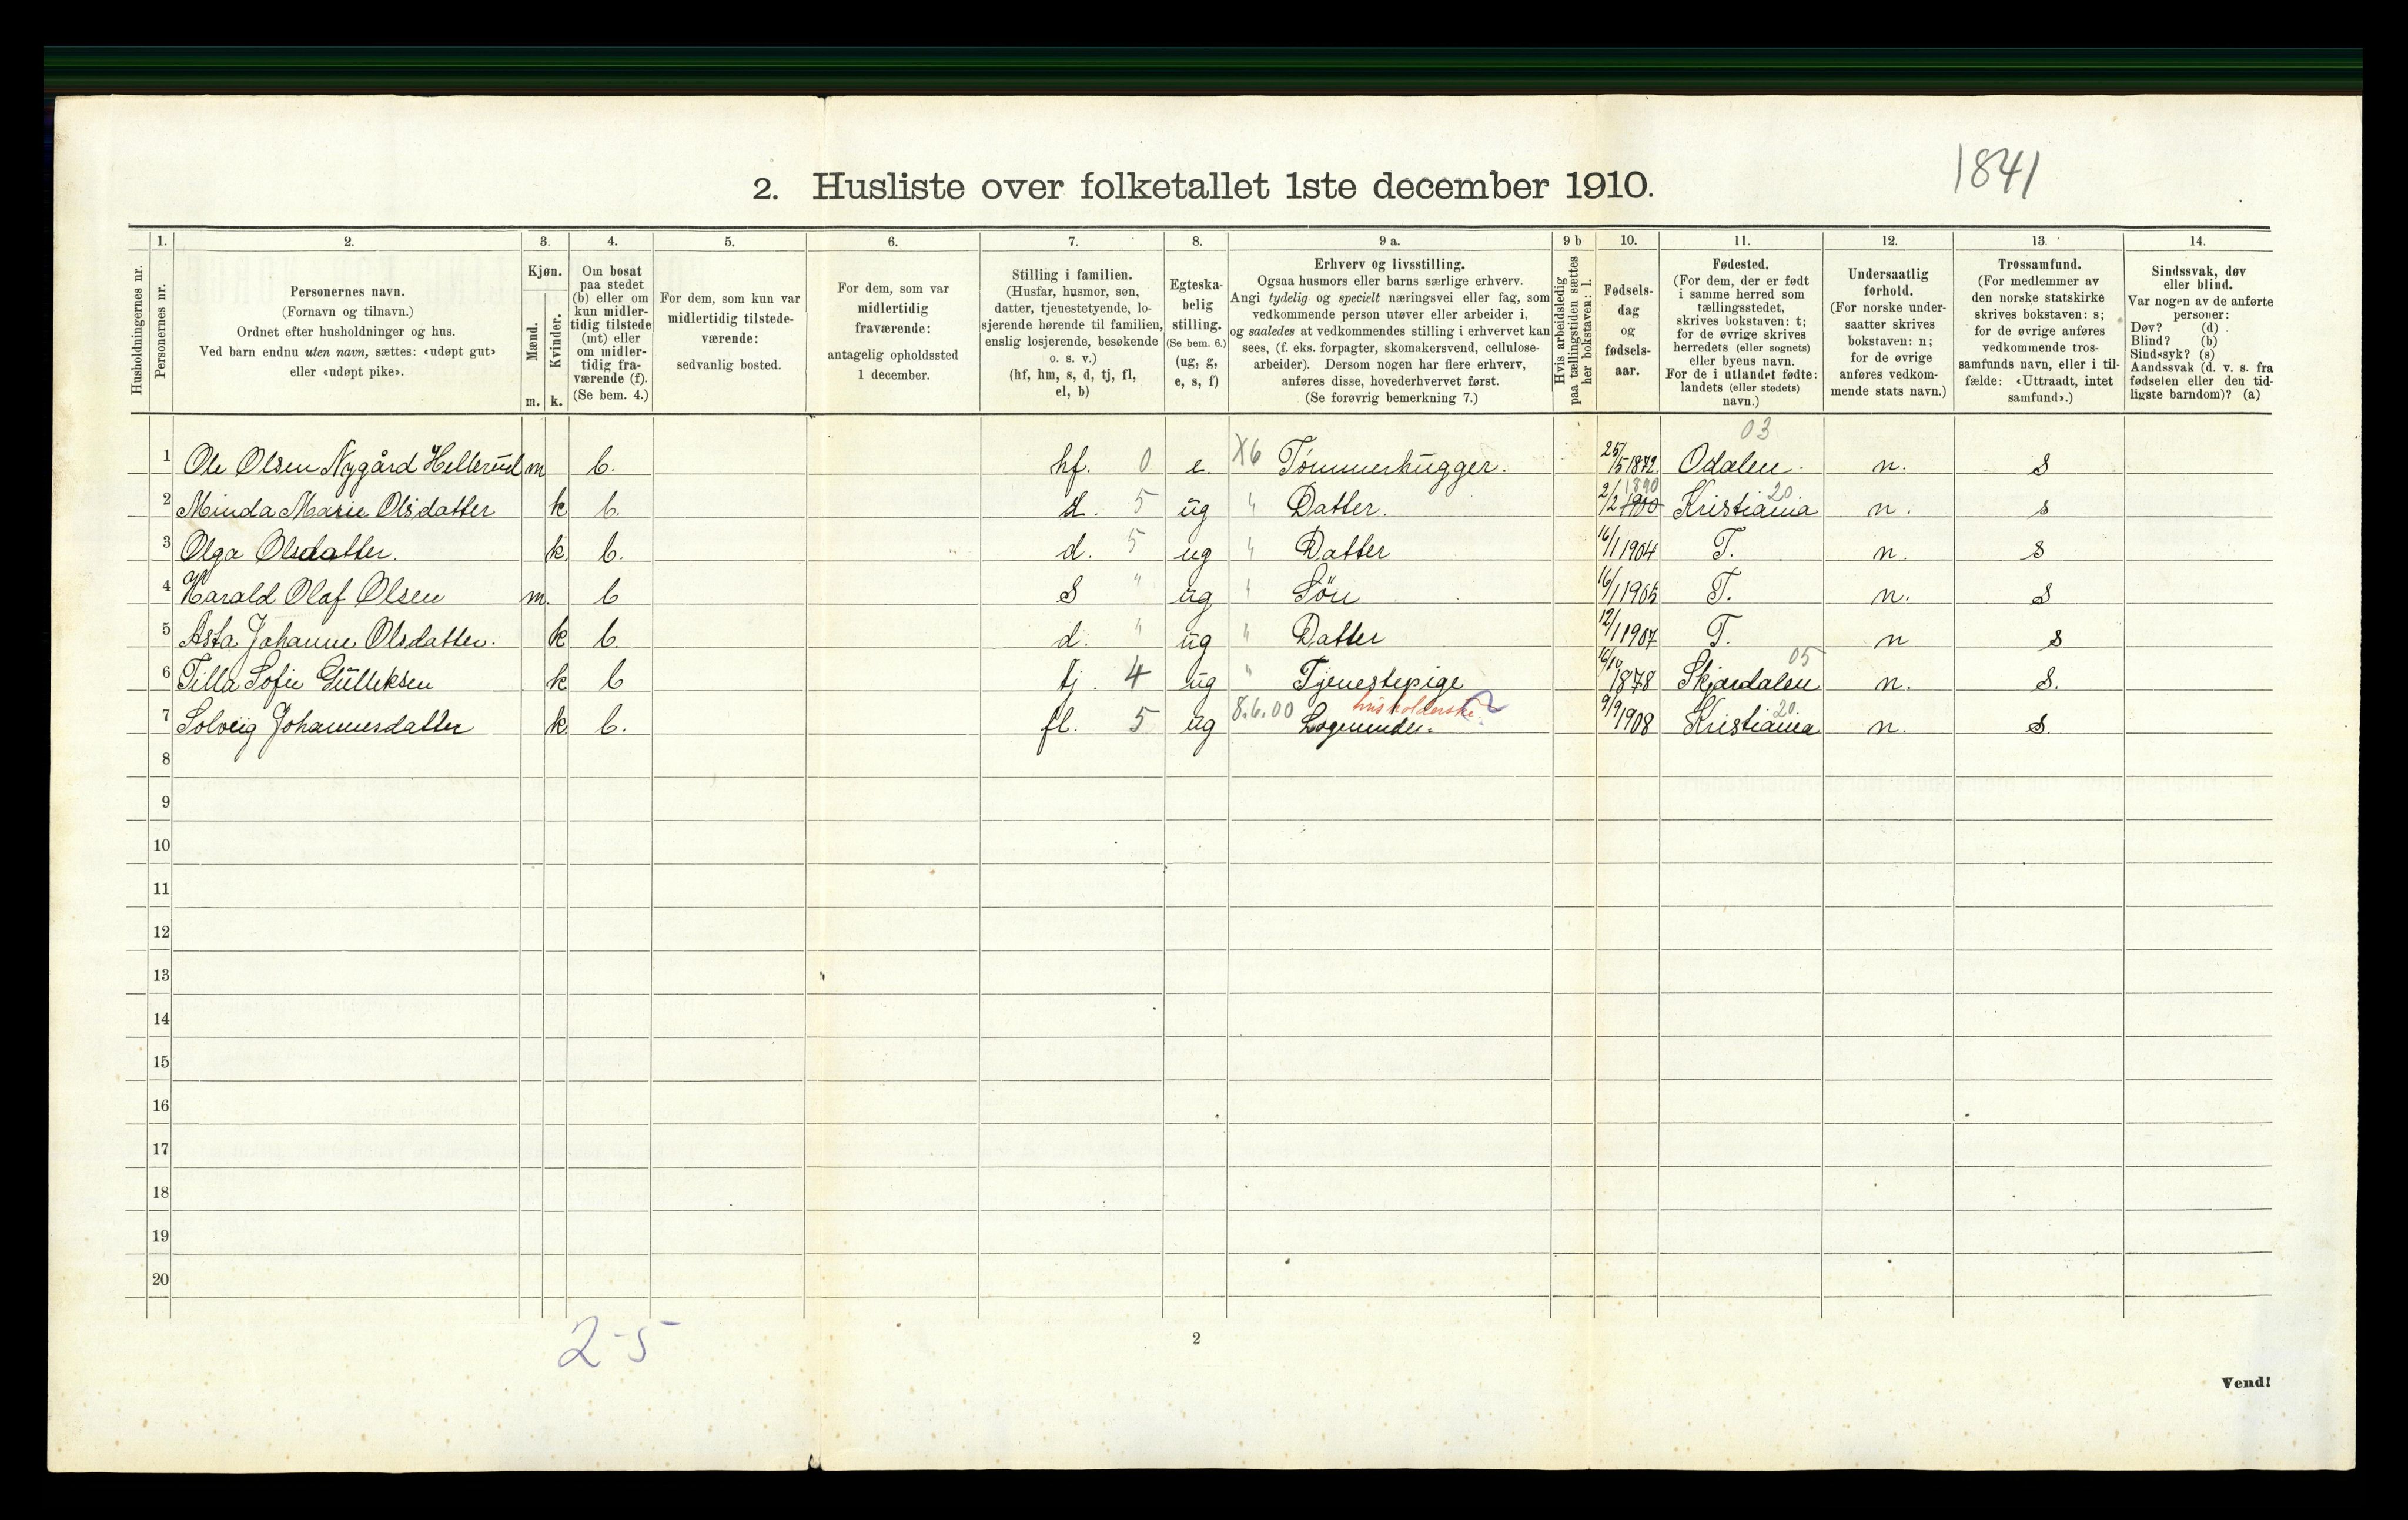 1841
2. Husliste over folketallet 1ste december 1910.
1. 2. 3. 4. 5. 6. 7. 8. 9 a. 9 b 10. 11. 12. 13. 14.
Husholdningernes nr.
Personernes nr.
Personernes navn.
(Fornavn og tilnavn.)
Ordnet efter husholdninger og hus.
Ved barn endnu uten navn, sættes: «udøpt gut»
eller «udøpt pike».
Kjøn.
Mænd.
Kvinder.
m. k.
Om bosat
paa stedet
(b) eller om
kun midler-
tidig tilstede
(mt) eller
om midler-
tidig fra-
værende (f).
(Se bem. 4.)
For dem, som kun var
midlertidig tilstede-
værende:
sedvanlig bosted.
For dem, som var
midlertidig
fraværende:
antagelig opholdssted
1 december.
Stilling i familien.
(Husfar, husmor, søn,
datter, tjenestetyende, lo-
sjerende hørende til familien,
enslig losjerende, besøkende
o. s. v.)
(hf, hm, s, d, tj, fl,
el, b)
Egteska-
belig
stilling.
(Se bem. 6.)
(ug, g,
e, s, f)
Erhverv og livsstilling.
Ogsaa husmors eller barns særlige erhverv.
Angi tydelig og specielt næringsvei eller fag, som
vedkommende person utøver eller arbeider i,
og saaledes at vedkommendes stilling i erhvervet kan
sees, (f. eks. forpagter, skomakersvend, cellulose-
arbeider). Dersom nogen har flere erhverv,
anføres disse, hovederhvervet først.
(Se forøvrig bemerkning 7.)
Hvis arbeidsledig
paa tællingstiden sættes
her bokstaven: l.
Fødsels-
dag
og
fødsels-
aar.
Fødested.
(For dem, der er født
i samme herred som
tællingsstedet,
skrives bokstaven: t;
for de øvrige skrives
herredets (eller sognets)
eller byens navn.
For de i utlandet fødte:
landets (eller stedets)
navn.)
Undersaatlig
forhold.
(For norske under-
saatter skrives
bokstaven: n;
for de øvrige
anføres vedkom-
mende stats navn.)
Trossamfund.
(For medlemmer av
den norske statskirke
skrives bokstaven: s;
for de øvrige anføres
vedkommende tros-
samfunds navn, eller i til-
fælde: «Uttraadt, intet
samfund».)
Sindssvak, døv
eller blind.
Var nogen av de anførte
personer:
Døv? (d)
Blind? (b)
Sindssyk? (s)
Aandssvak (d. v. s. fra
fødselen eller den tid-
ligste barndom)? (a)
03
1 Ole Olsen Nygård Hellerud m b. hf. 0 e. X6 Tömmerhugger. 25/5 1872 Odalen. n. s
1890 20
2 Minda Marie Olsdatter k b. d. 5 ug " Datter. 2/2 1900 Kristiania n. s
3 Olga Olsdatter. k b. d. 5 ug " Datter 16/1 1904 T. n. s
4 Harald Olaf Olsen m. b s " ug " Sön 16/1 1905 T. n. s
5 Asta Johanne Olsdatter. k b. d. " ug " Datter 12/1 1907 T. n s
05
6 Tilla Sofie Gulleksen k b tj. 4 ug " Tjenestepige 16/10 1878 Skjærdalen n. s.
husholderske 20.
7 Solveig Johannesdatter k. b. fl. 5 ug 8.6.00 9/9 1908 Kristiania n. s.
8
9
10
11
12
13
14
15
16
17
18
19
20
2-5
2
Vend!